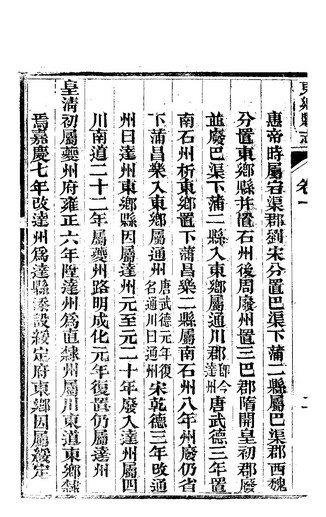 東鄉縣志
卷一
二
惠帝時屬宕渠郡劉宋分置巴渠下蒲二縣屬巴渠郡西魏
分置東鄉縣并置石州後周廢州置三巴郡隋開皇初郡廢
並廢巴渠下蒲二縣入東鄉縣屬通川郡即今達州唐武德三年置
南石州析東鄉置下蒲昌樂二縣屬南石州八年州廢仍省
下蒲昌樂入東鄉縣屬通州唐武德元年復名通川曰通州宋乾德三年改通
州曰達州東鄉縣因屬達州元至元二十年廢入達州屬四
川南道二十二年屬夔州路明成化元年復置仍屬達州
皇清初屬夔州府雍正六年陞達州爲直隸州屬川東道東鄉隸
焉嘉慶七年改達州爲達縣添設綏定府東鄉因屬綏定